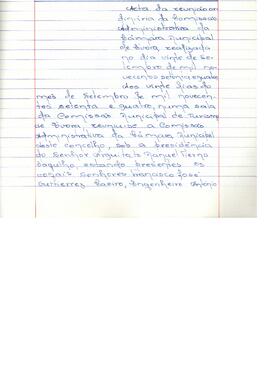 Acta da reunião or
dinária da Comissão
Administrativa da
Câmara Municipal
de Évora realizada
no dia vinte de se-
tembro de mil no-
vecentos setenta e quatro
Aos vinte dias do
mês de Setembro de mil novecen-
tos setenta e quatro, numa sala
da Comissão Municipal de Turismo
de Évora, reuniu-se a Comissão
Administrativa da Câmara Municipal
deste concelho, sob a presidência
do Senhor Arquitecto Manuel
estando presentes os
vogais Senhores Francisco José
Gutierrez Engenheiro António